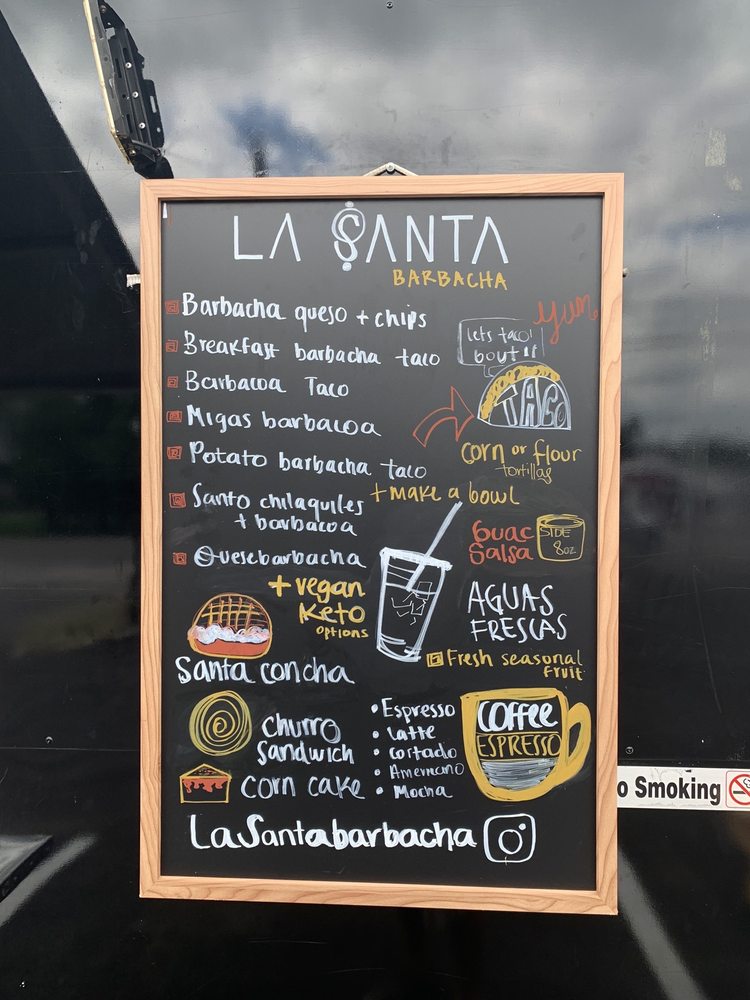 LA SANTA
BARBACHA
Barbacha queso + chips
Yum
Breakfast barbacha taco
lets taco!
bout it
Barbacoa Taco
TACO
Migas barbacoa
corn or flour
tortillas
Potato barbacha taco
+ make a bowl
Santo chilaquiles
+ barbacoa
Guac
Salsa
SIDE
8oz
Quesebarbacha
+ vegan
Keto
options
AGUAS
FRESCAS
Fresh seasonal
fruit
Santa concha
churro
sandwich
corn cake
• Espresso
• Latte
• Cortado
• Americano
• Mocha
COFFEE
ESPRESSO
LaSantabarbacha
o Smoking